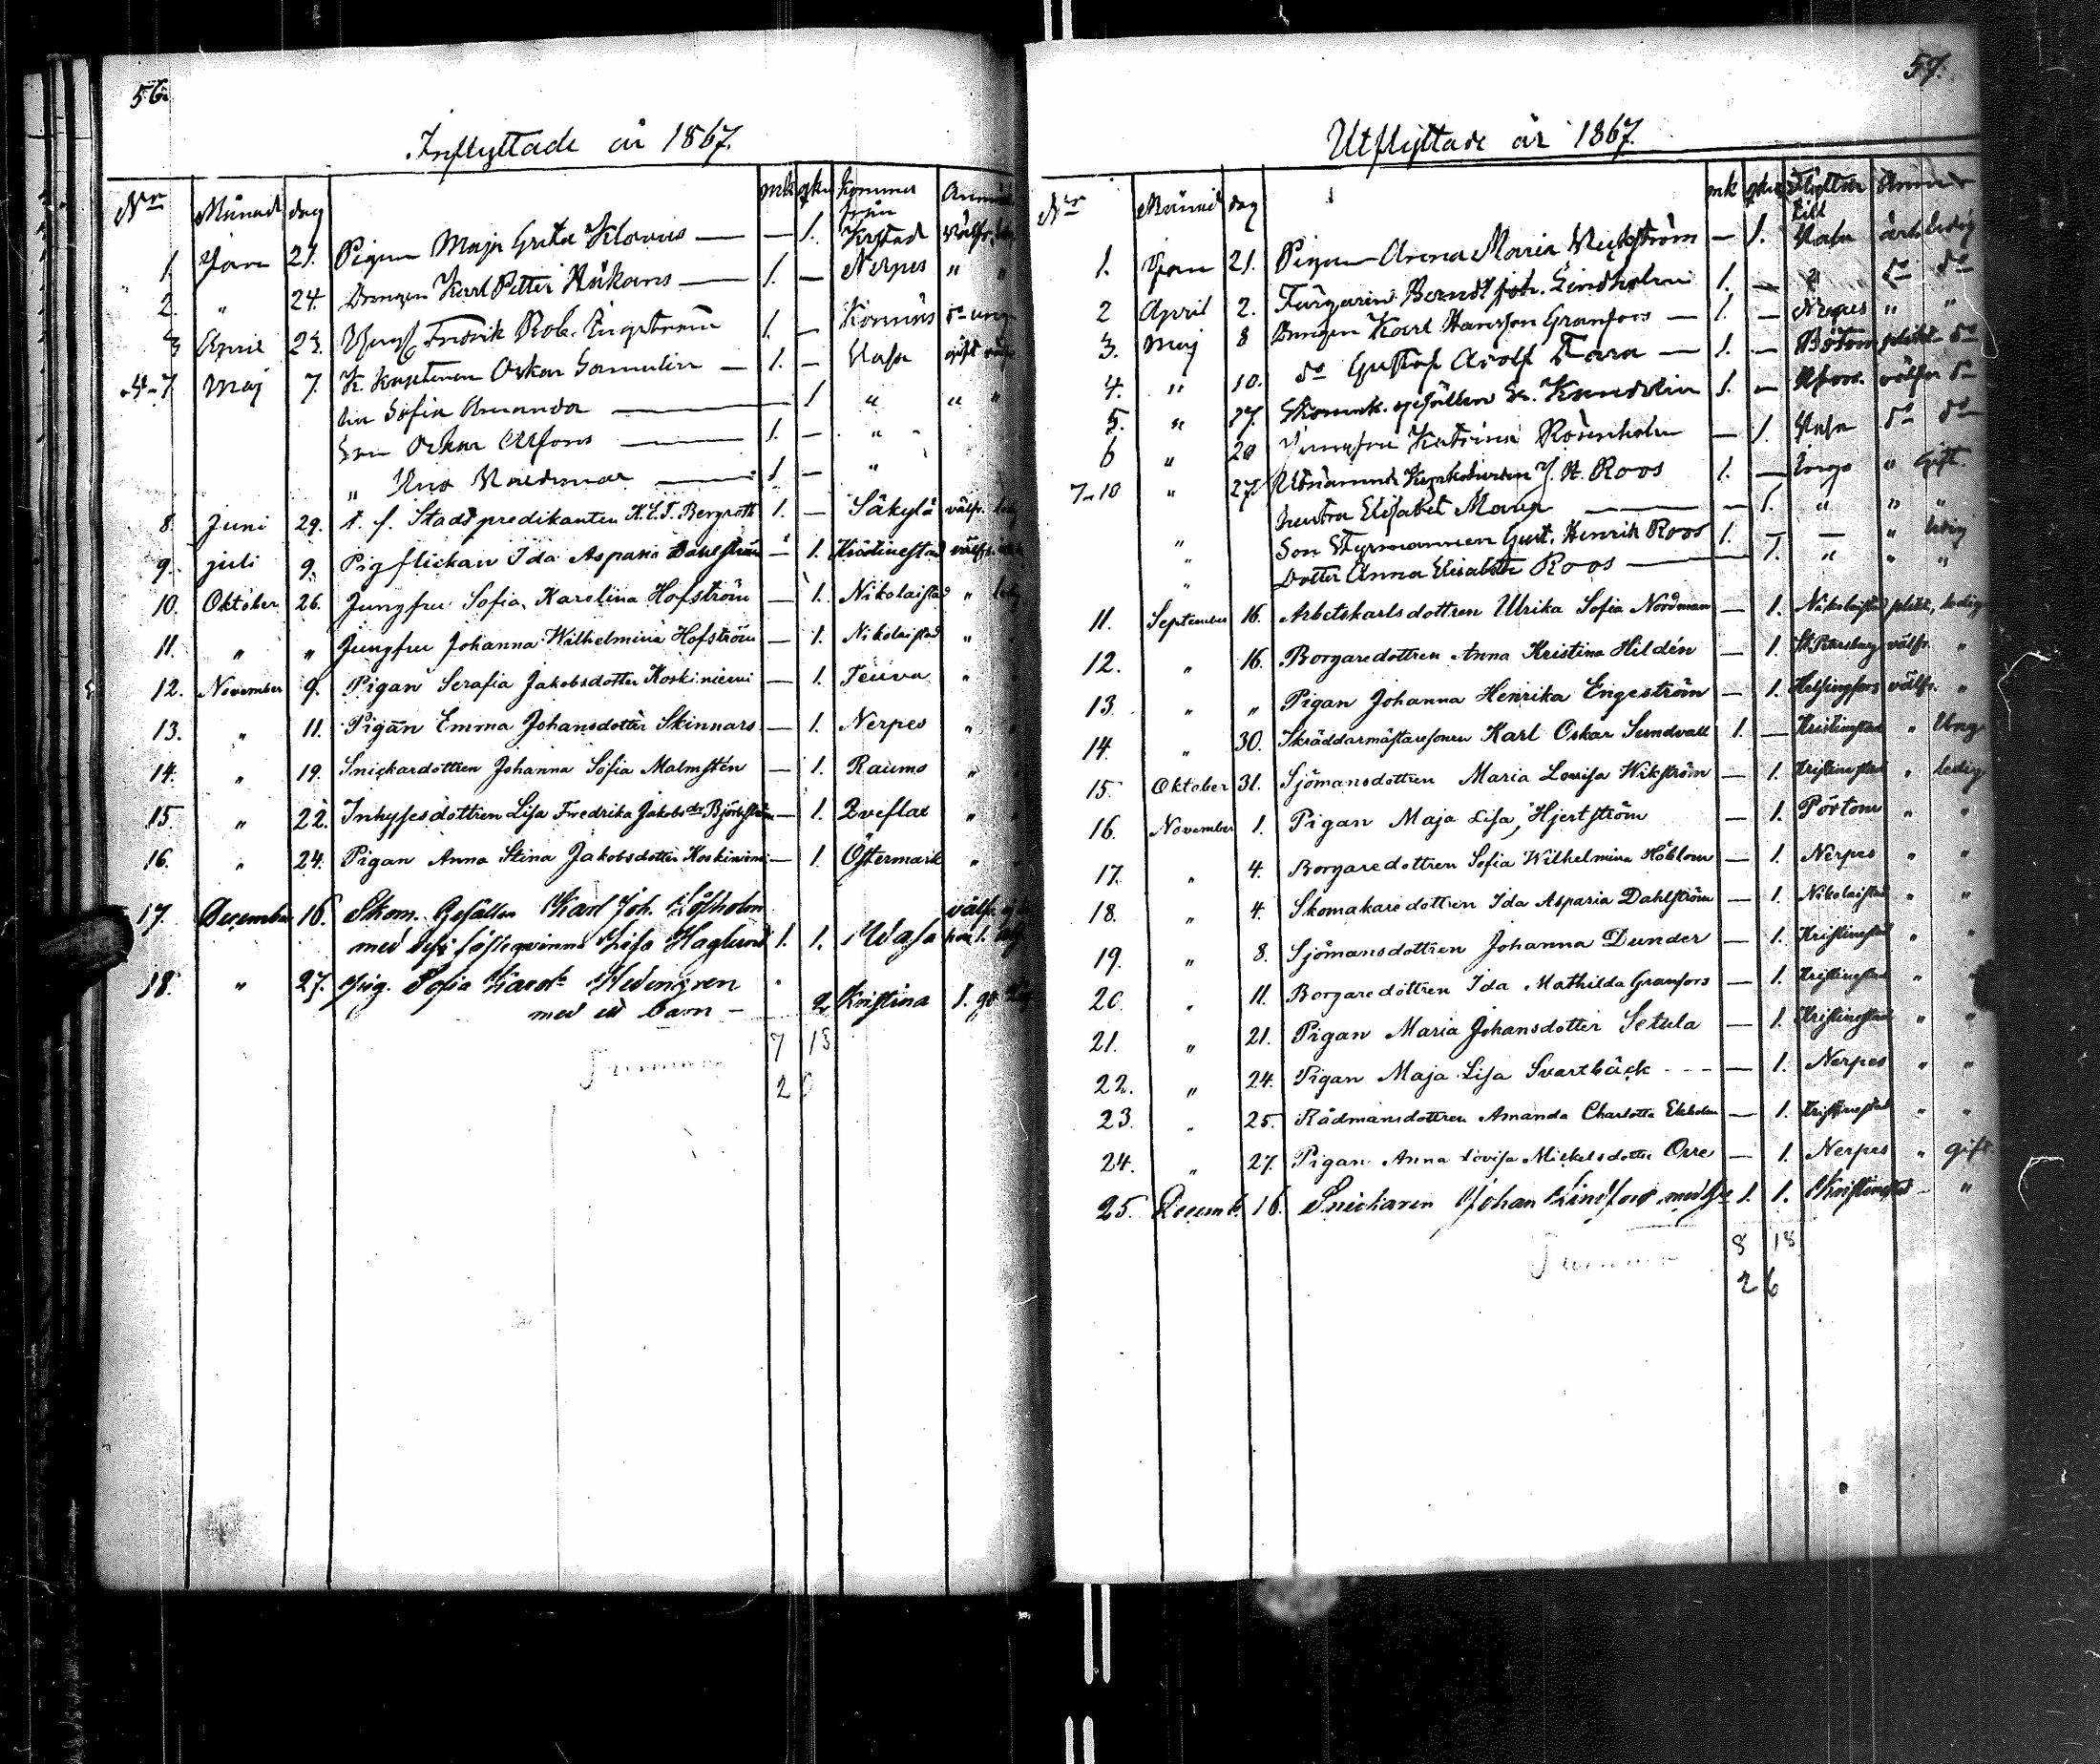 56.
Inflyttade år 1867.
Nr Månad dag mk qk Kommer från
1. Jan 21. Pigan Maja Greta Klavus — — 1. Kr:stad välfr.
2. " 24. Drengen Karl Petter Håkans — 1. — Nerpes " "
3 April 23. Fredrik Rob. Engström 1. — Korsnäs do ung
4-7 Maj 7. Kaptenen Oskar Gamelin — 1. — Vasa
Sofia Amanda — 1 " " "
Son Oskar Alfons — 1. — "
" Valdemar — 1 — "
8. Juni 29. t. f. Stadspredikanten K. L. T. Bergroth 1. — Säkylä välfr. ledig
9. juli 9. Pigflickan Ida Asparia Dahlström — 1. Kristinestad välfr.
10. Oktober 26. Jungfru Sofia Karolina Hofström — 1. Nikolaistad " ledig
11. " " Jungfru Johanna Wilhelmina Hofström — 1. Nikolaistad "
12. November 9. Pigan Serafia Jakobsdotter Koskiniemi — 1. Teuva "
13. " 11. Pigan Emma Johansdotter Skinnars — 1. Nerpes "
14. " 19. Snickardottren Johanna Sofia Malmstén — 1. Raumo "
15. " 22. Inhysesdottren Lisa Fredrika Jakobsdr Björkström — 1. Qveflax "
16. " 24. Pigan Anna Stina Jakobsdotter Koskiniemi — 1. Östermark "
17. December 16. Skom. Gesällen Karl Joh. Löfholm välfr.
med dess fästeqvinna Lisa Haglund 1. 1. Wasa
18. " 27. Pig. Sofia Karol. Hedengren
med ett barn — 2 Kristina 1. gg
7 13
Summa
20
57.
Utflyttade år 1867.
Nr Månad dag mk qk Flyttar till
1. Jan 21. Pigan Anna Maria Weckström — 1. Vasa ledig
2 April 2. Färgaren Berndt Joh. Lindholm 1. — " do do
3. Maj 8 Drengen Karl Hansson Granfors — 1. — Nerpes " "
4. " 10. do Gustaf Adolf Fara — 1. — Bötom do
5. " 27. Skomak. gesällen 1. — välfr do
6 " 20 Jungfru Katrina Rosenholm — 1. Vasa do do
7-10 " 27. Utnämnde Kyrkoherden J. H. Roos 1. — " Gift
hustru Elisabet — — 1. " " "
" Son Styrmannen Gust. Henrik Roos 1. — — " ledig
" Dotter Anna Elisabeth Roos — 1. " " "
11. September 16. Arbetskarlsdottren Ulrika Sofia Nordman — 1. Nikolaistad ledig
12. " 16. Borgaredottren Anna Kristina Hildén — 1. St. Petersburg välfr. "
13. " " Pigan Johanna Henrika Engeström — 1. Helsingfors välfr. "
14. " 30. Skräddarmästaresonen Karl Oskar Sundvall 1. — Kristinestad " Ung
15. Oktober 31. Sjömansdottren Maria Lovisa Wikström — 1. Kristinestad " ledig
16. November 1. Pigan Maja Lisa Hjertström — 1. Pörtom " "
17. " 4. Borgaredottren Sofia Wilhelmina Höblom — 1. Nerpes " "
18. " 4. Skomakaredottren Ida Asparia Dahlström — 1. Nikolaistad " "
19. " 8. Sjömansdottren Johanna Dunder — 1. Kristinestad " "
20. " 11. Borgaredottren Ida Mathilda Granfors — 1. Kristinestad " "
21. " 21. Pigan Maria Johansdotter Setula — 1. Kristinestad " "
22. " 24. Pigan Maja Lisa Svartbäck - - - — 1. Nerpes " "
23. " 25. Rådmansdottren Amanda Charlotta Ekholm — 1. Kristinestad " "
24. " 27. Pigan Anna Lovisa Mickelsdotter Orre — 1. Nerpes " gift.
25. Decemb. 16. Snickaren Johan Lindfors med h:u 1. 1. Kristinestad — "
8 18
Summa
26